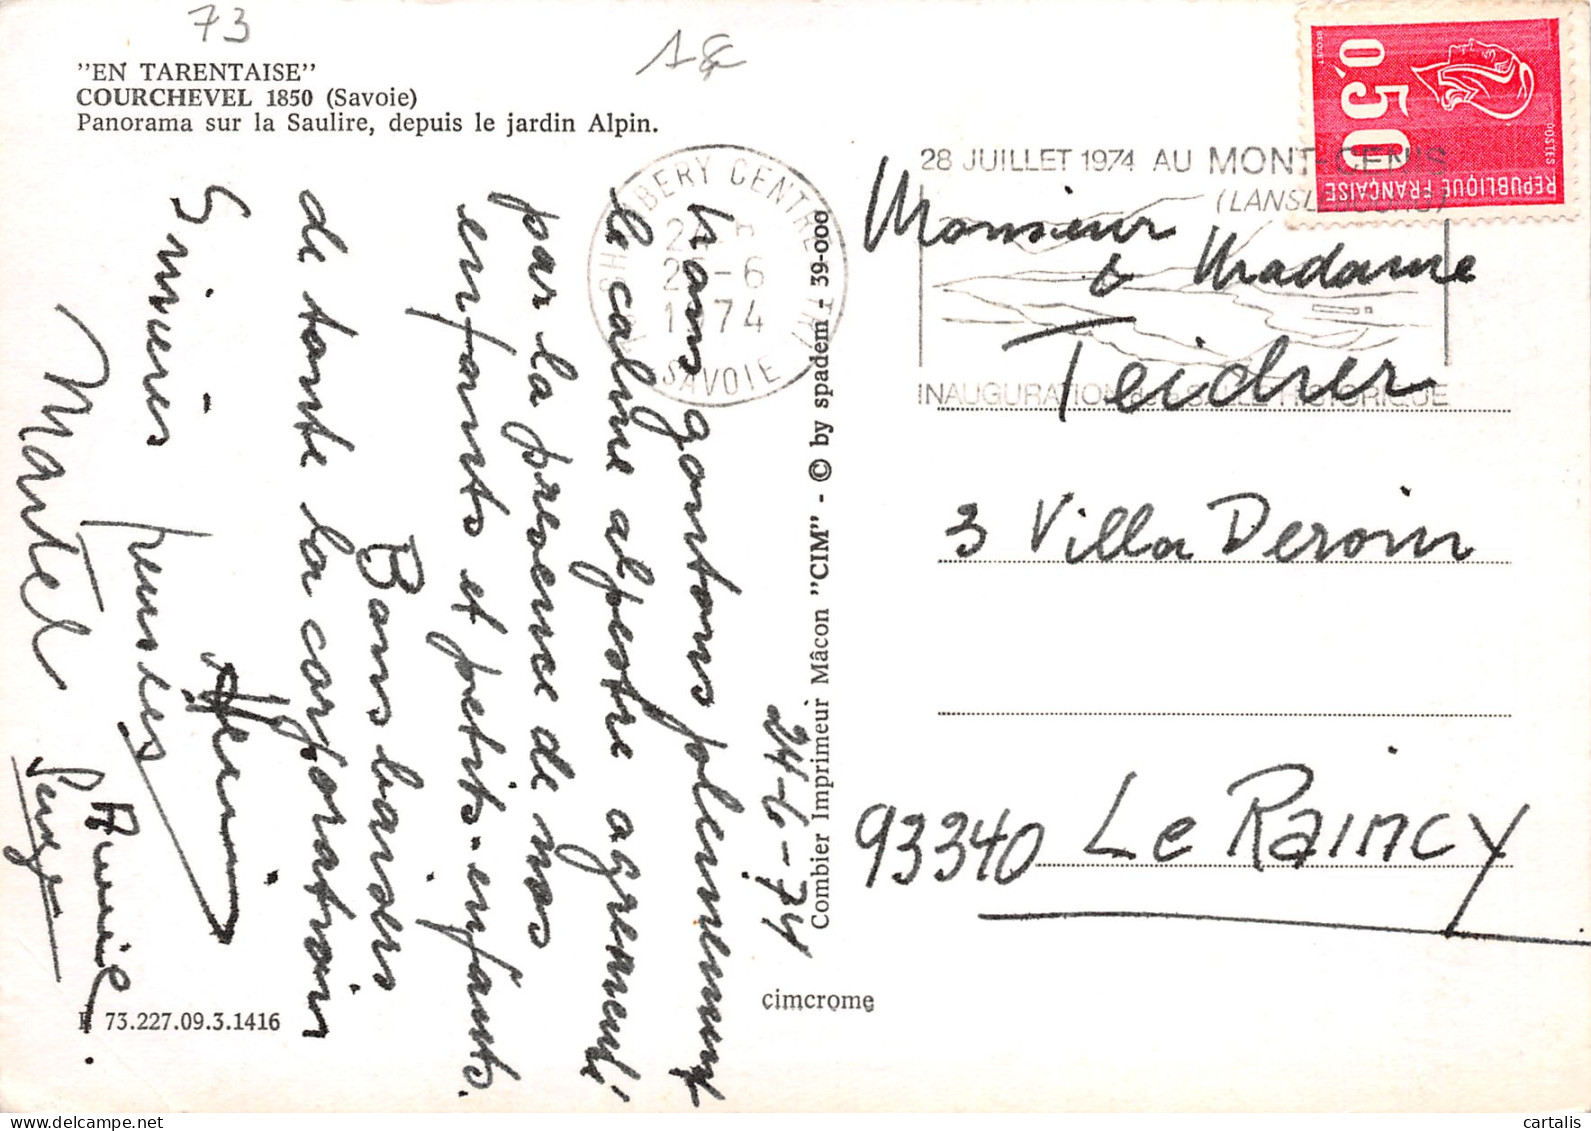 73
1€
"EN TARENTAISE"
COURCHEVEL 1850 (Savoie)
Panorama sur la Saulire, depuis le jardin Alpin.
24-6-74
Nous goutons pleinement
le calme alpestre agrementé
par la presence de nos
enfants et petits-enfants.
Bons baisers
de toute la corporation
Sinceres pensées
Henri
Martel
Serge
E 73.227.09.3.1416
Combier Imprimeur Mâcon "CIM" - © by spadem - 39-000
cimcrome
CHAMBERY CENTRE
25-6
1974
SAVOIE
28 JUILLET 1974 AU MONT-CENIS
INAUGURATION SALLE HISTORIQUE
0,50
POSTES
REPUBLIQUE FRANÇAISE
BEQUET
Monsieur
& Madame
Teicher
3 Villa Deroin
93340 Le Raincy
cartalis.com